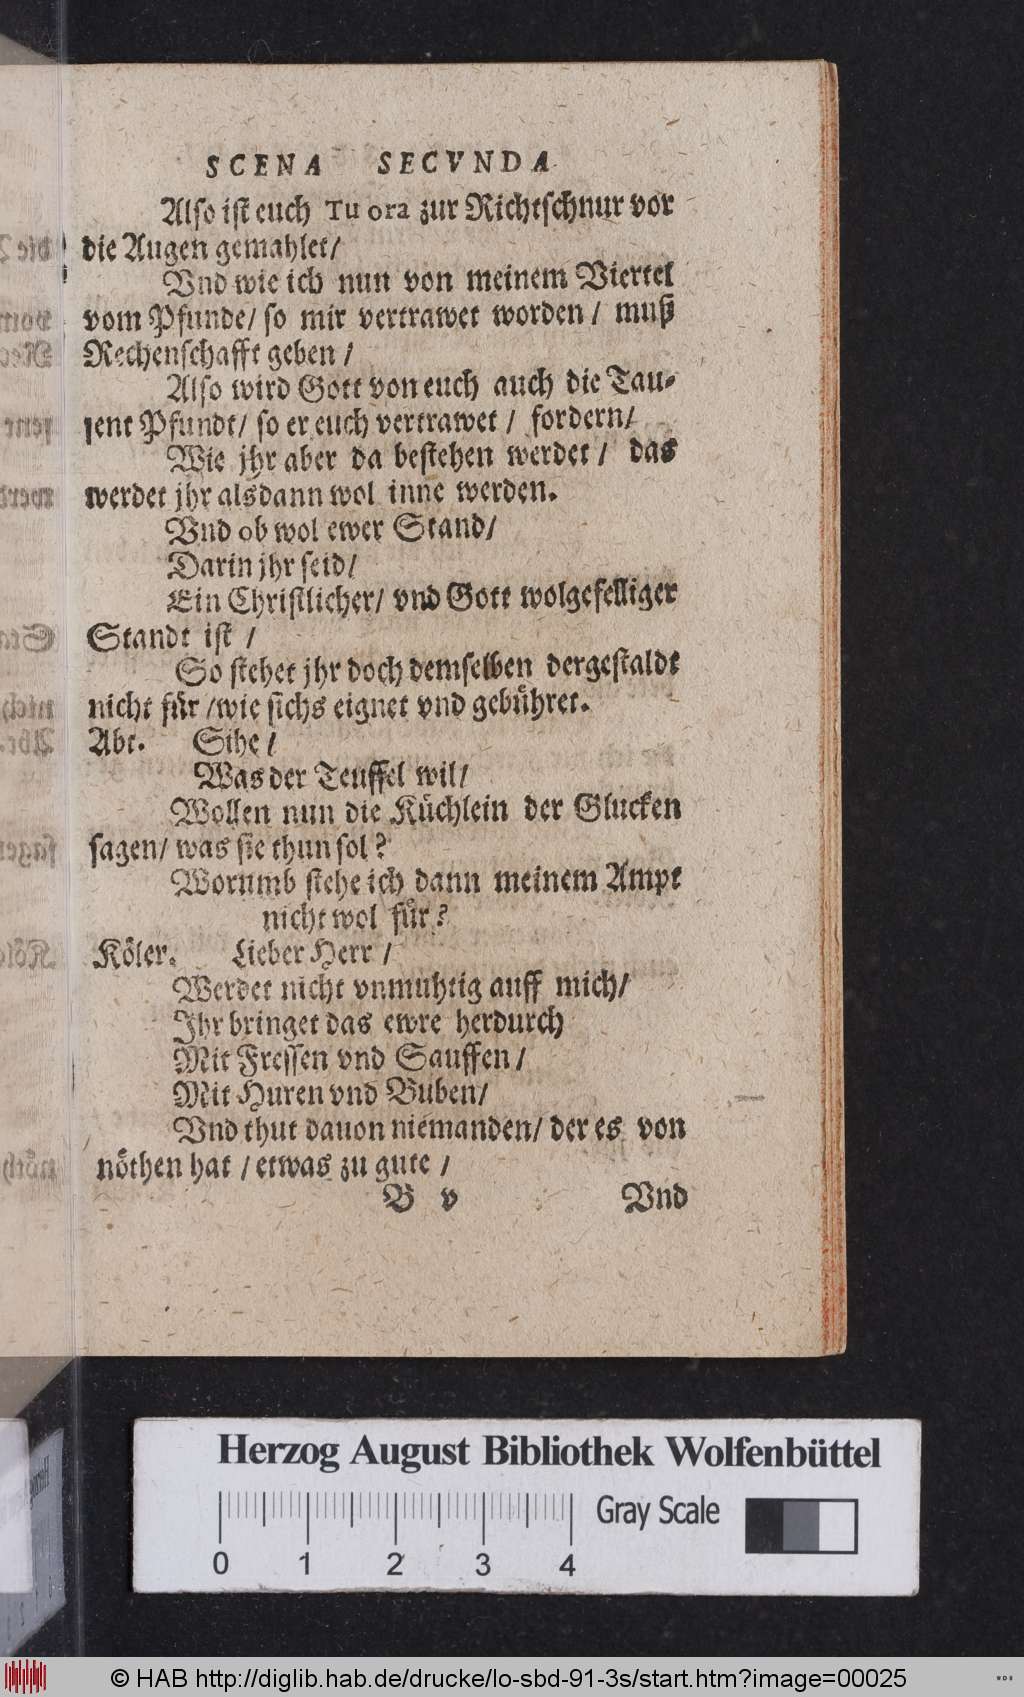 SCENA SECVNDA
Also ist euch Tu ora zur Richtschnur vor
die Augen gemahlet/
Vnd wie ich nun von meinem Viertel
vom Pfunde/ so mir vertrawet worden / muß
Rechenschafft geben /
Also wird Gott von euch auch die Tau-
sent Pfundt/ so er euch vertrawet / fordern/
Wie jhr aber da bestehen werdet / das
werdet jhr alsdann wol inne werden.
Vnd ob wol ewer Stand/
Darin jhr seid/
Ein Christlicher/ vnd Gott wolgefelliger
Standt ist /
So stehet jhr doch demselben dergestaldt
nicht fuͤr /wie sichs eignet vnd gebuͤhret.
Abt. Sihe /
Was der Teuffel wil/
Wollen nun die Kuͤchlein der Glucken
sagen/ was sie thun sol?
Worumb stehe ich dann meinem Ampt
nicht wol fuͤr?
Koͤler. Lieber Herr /
Werdet nicht vnmuhtig auff mich/
Ihr bringet das ewre herdurch
Mit Fressen vnd Sauffen /
Mit Huren vnd Buben/
Vnd thut dauon niemanden/ der es von
noͤthen hat / etwas zu gute /
B v Vnd
Herzog August Bibliothek Wolfenbüttel
Gray Scale
0 1 2 3 4
© HAB http://diglib.hab.de/drucke/lo-sbd-91-3s/start.htm?image=00025